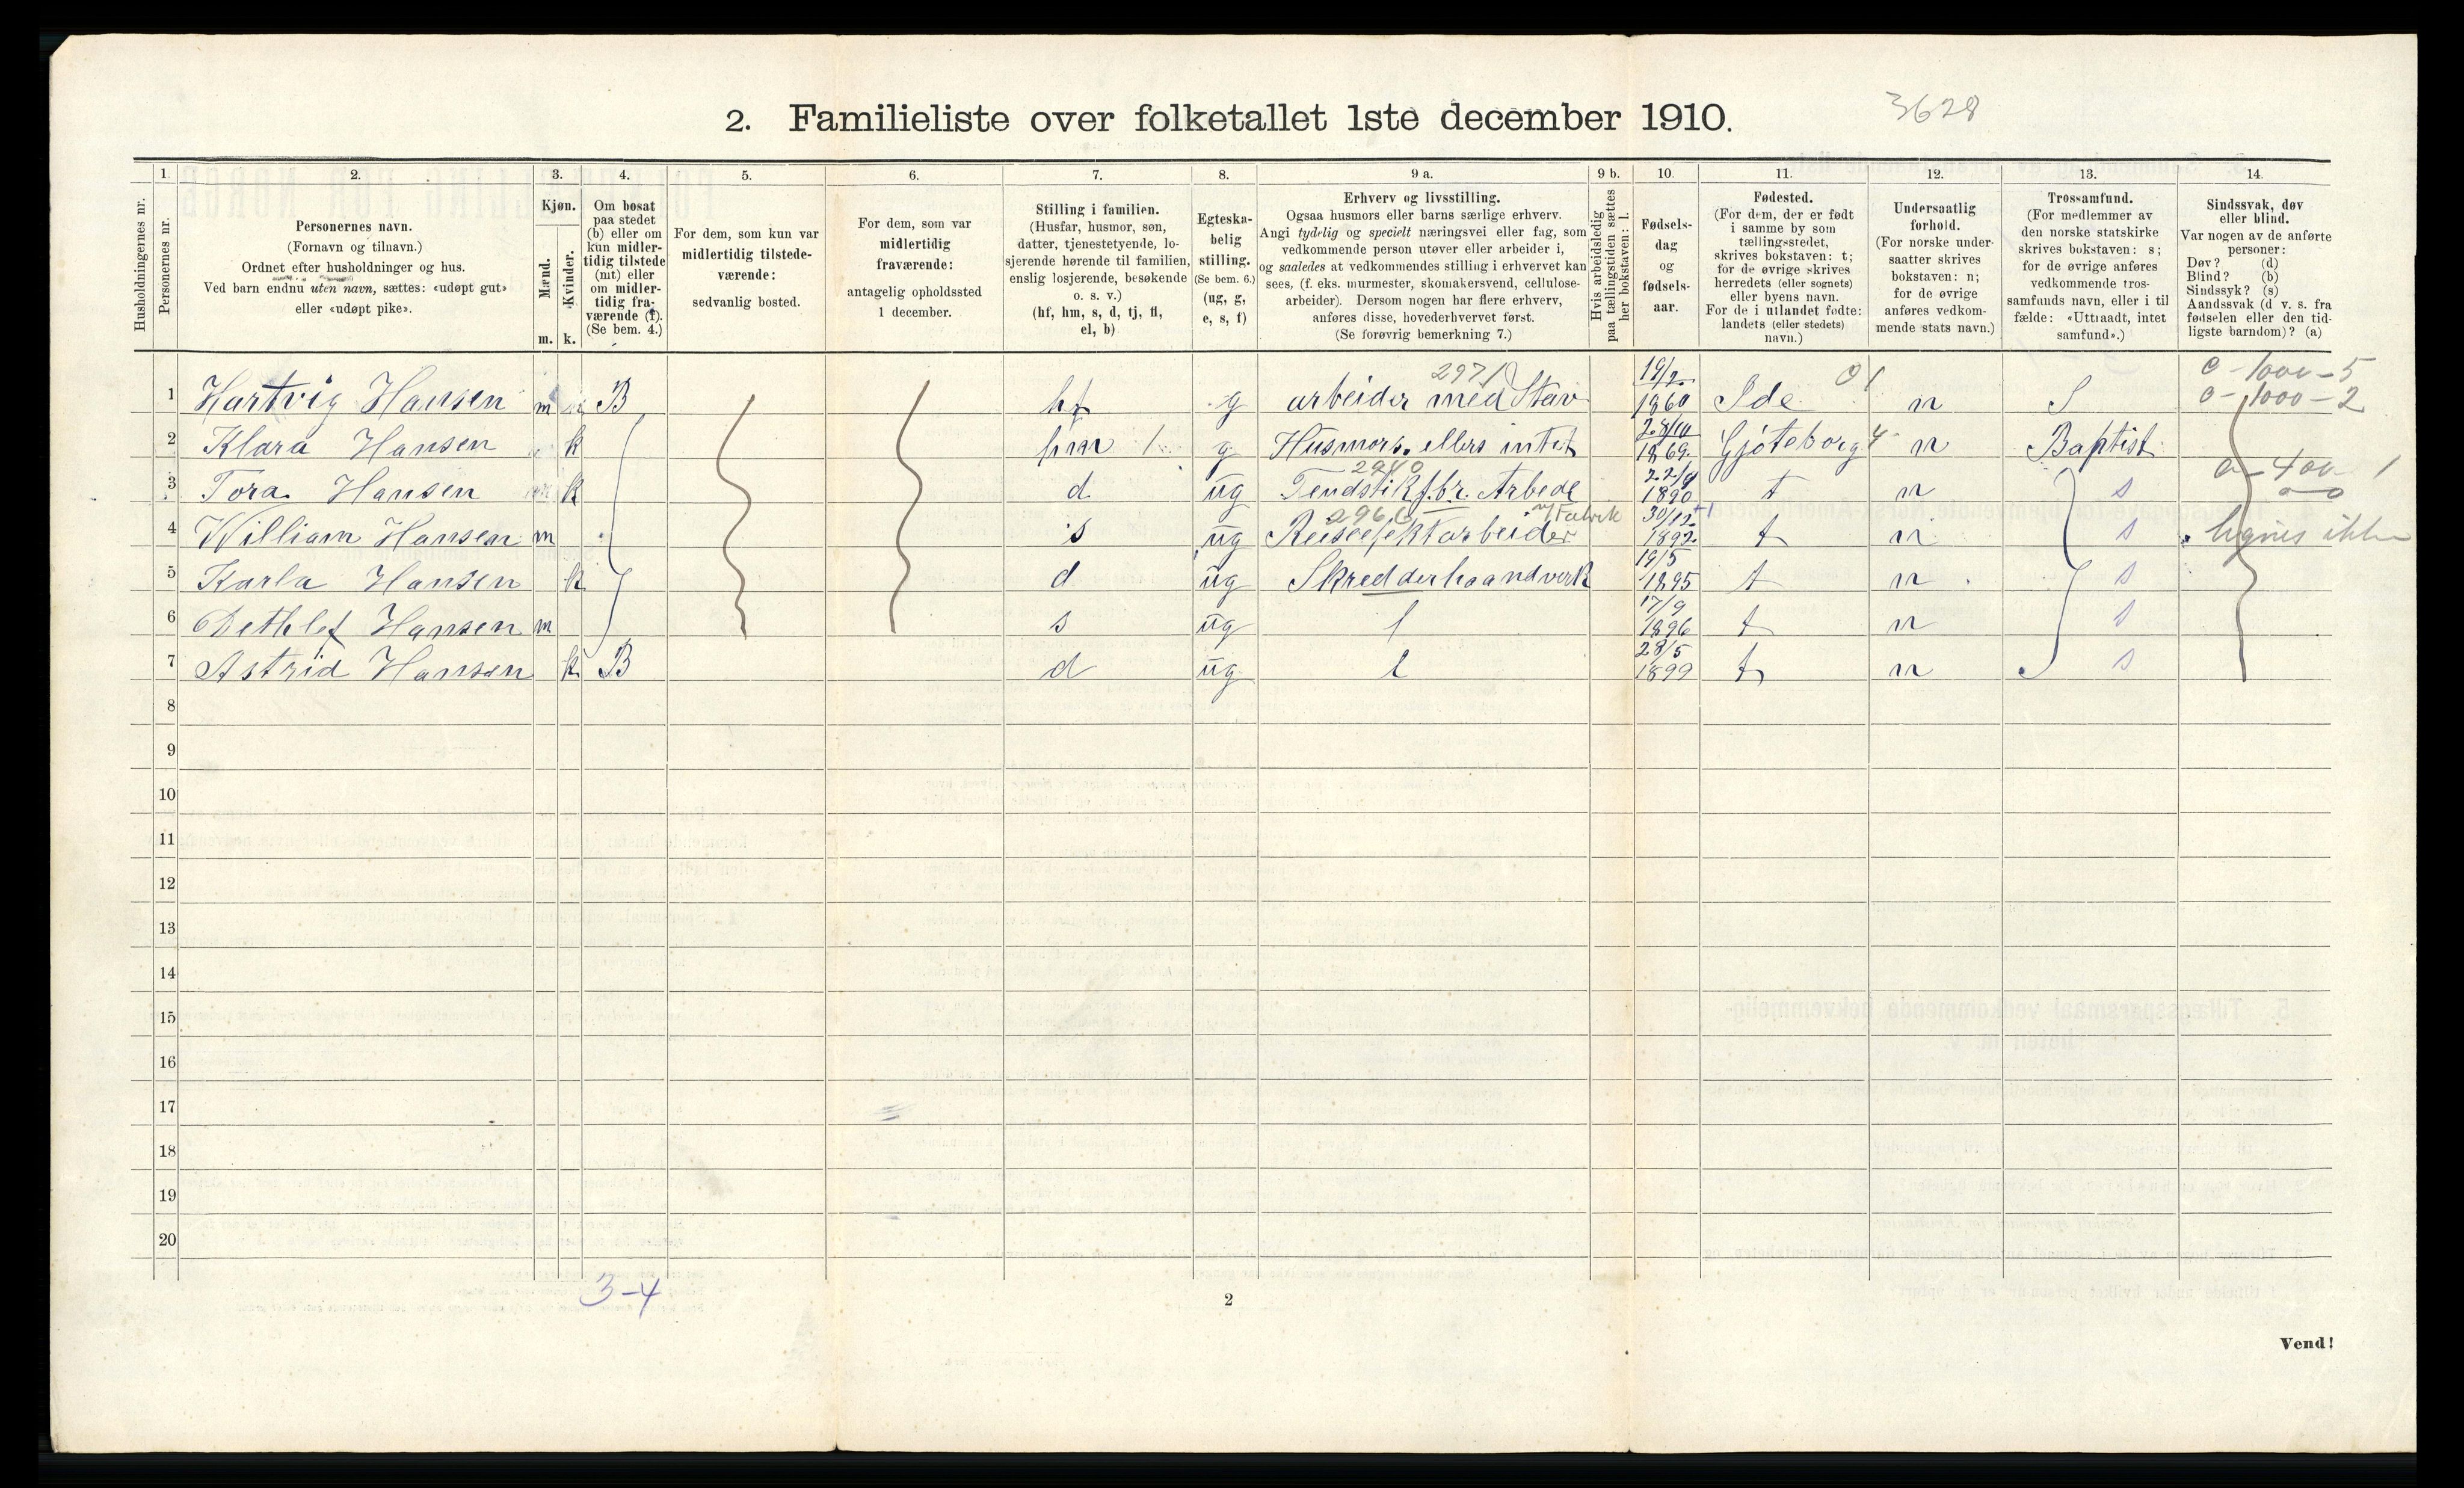 2. Familieliste over folketallet 1ste december 1910.
3628
1. 2. 3. 4. 5. 6. 7. 8. 9 a. 9 b. 10. 11. 12. 13. 14.
Husholdningernes nr.
Personernes nr.
Personernes navn.
(Fornavn og tilnavn.)
Ordnet efter husholdninger og hus.
Ved barn endnu uten navn, sættes: «udøpt gut»
eller «udøpt pike».
Kjøn.
Mænd.
Kvinder.
m. k.
Om bosat
paa stedet
(b) eller om
kun midler-
tidig tilstede
(mt) eller
om midler-
tidig fra-
værende (f).
(Se bem. 4.)
For dem, som kun var
midlertidig tilstede-
værende:
sedvanlig bosted.
For dem, som var
midlertidig
fraværende:
antagelig opholdssted
1 december.
Stilling i familien.
(Husfar, husmor, søn,
datter, tjenestetyende, lo-
sjerende hørende til familien,
enslig losjerende, besøkende
o. s. v.)
(hf, hm, s, d, tj, fl,
el, b)
Egteska-
belig
stilling.
(Se bem. 6.)
(ug, g,
e, s, f)
Erhverv og livsstilling.
Ogsaa husmors eller barns særlige erhverv.
Angi tydelig og specielt næringsvei eller fag, som
vedkommende person utøver eller arbeider i,
og saaledes at vedkommendes stilling i erhvervet kan
sees, (f. eks. murmester, skomakersvend, cellulose-
arbeider). Dersom nogen har flere erhverv,
anføres disse, hovederhvervet først.
(Se forøvrig bemerkning 7.)
Hvis arbeidsledig
paa tællingstiden sættes
her bokstaven: l.
Fødsels-
dag
og
fødsels-
aar.
Fødested.
(For dem, der er født
i samme by som
tællingsstedet,
skrives bokstaven: t;
for de øvrige skrives
herredets (eller sognets)
eller byens navn.
For de i utlandet fødte:
landets (eller stedets)
navn.)
Undersaatlig
forhold.
(For norske under-
saatter skrives
bokstaven: n;
for de øvrige
anføres vedkom-
mende stats navn.)
Trossamfund.
(For medlemmer av
den norske statskirke
skrives bokstaven: s;
for de øvrige anføres
vedkommende tros-
samfunds navn, eller i til
fælde: «Uttraadt, intet
samfund».)
Sindssvak, døv
eller blind.
Var nogen av de anførte
personer:
Døv? (d)
Blind? (b)
Sindssyk? (s)
Aandssvak (d v. s. fra
fødselen eller den tid-
ligste barndom)? (a)
2971 19/2 01 0 - 1000 - 5
1 Hartvig Hansen m B hf g arbeider med Stav 1860 Ide n S 0 - 1000 - 2
2 Klara Hansen k hm 1 g Husmors. ellers intet 28/10 1869 Gjøteborg 4 n Baptist
2940 0 - 400 1
3 Tora Hansen k d ug Tendstikfbr. Arbede 22/9 1890 t n s
2966 Fabrik
4 William Hansen m s ug Reiseefektarbeider 30/12 1892 t n s lignes ikke
5 Karla Hansen k d ug Skredderhaandverk 19/5 1895 t n s
6 Dethlef Hansen m s ug l 17/9 1896 t n s
7 Astrid Hansen k B d ug l 28/5 1899 t n s
8
9
10
11
12
13
14
15
16
17
18
19
20
3-4
2
Vend!